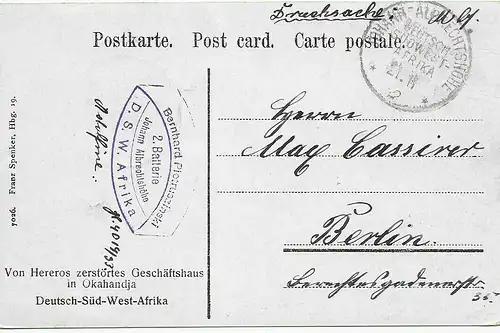 Drucksache
Postkarte. Post card. Carte postale.
JOHANN-ALBRECHTSHÖHE
DEUTSCH-
SÜDWEST-
AFRIKA
Bernhard
2. Batterie
Johann Albrechtshöhe
D. S. W. Afrika
Herrn
Max Cassirer
Berlin.
Berchtesgadenerstr.
35
7026. Franz Spenker, Hbg. 19.
Von Hereros zerstörtes Geschäftshaus
in Okahandja
Deutsch-Süd-West-Afrika